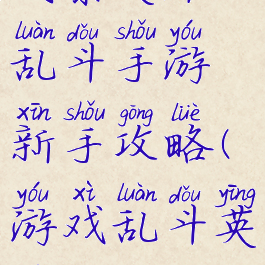 luàn dǒu shǒu yóu
乱斗手游
xīn shǒu gōng lüè
新手攻略(
yóu xì luàn dǒu yīng
游戏乱斗英